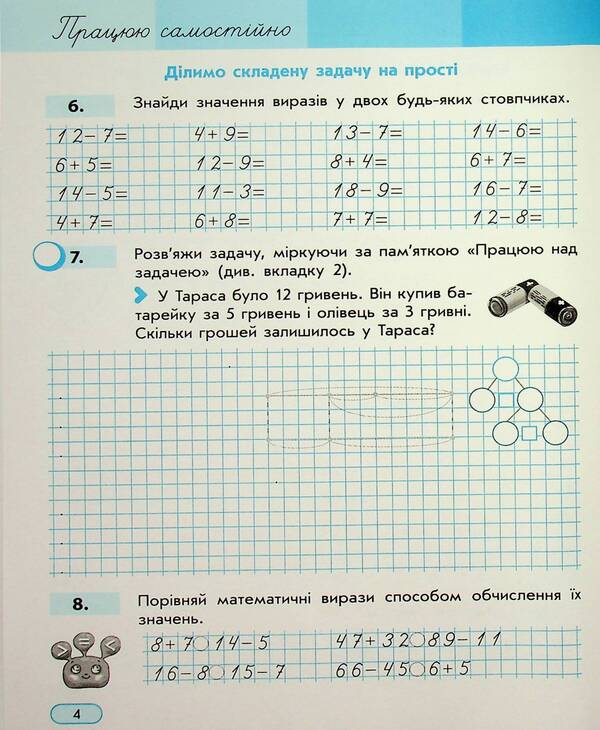 Працюю самостійно
Ділимо складену задачу на прості
6. Знайди значення виразів у двох будь-яких стовпчиках.
12-7= 4+9= 13-7= 14-6=
6+5= 12-9= 8+4= 6+7=
14-5= 11-3= 18-9= 16-7=
4+7= 6+8= 7+7= 12-8=
7. Розв'яжи задачу, міркуючи за пам'яткою «Працюю над
задачею» (див. вкладку 2).
У Тараса було 12 гривень. Він купив ба-
тарейку за 5 гривень і олівець за 3 гривні.
Скільки грошей залишилось у Тараса?
8. Порівняй математичні вирази способом обчислення їх
значень.
> = <
8+7○14-5 47+32○89-11
16-8○15-7 66-45○6+5
4